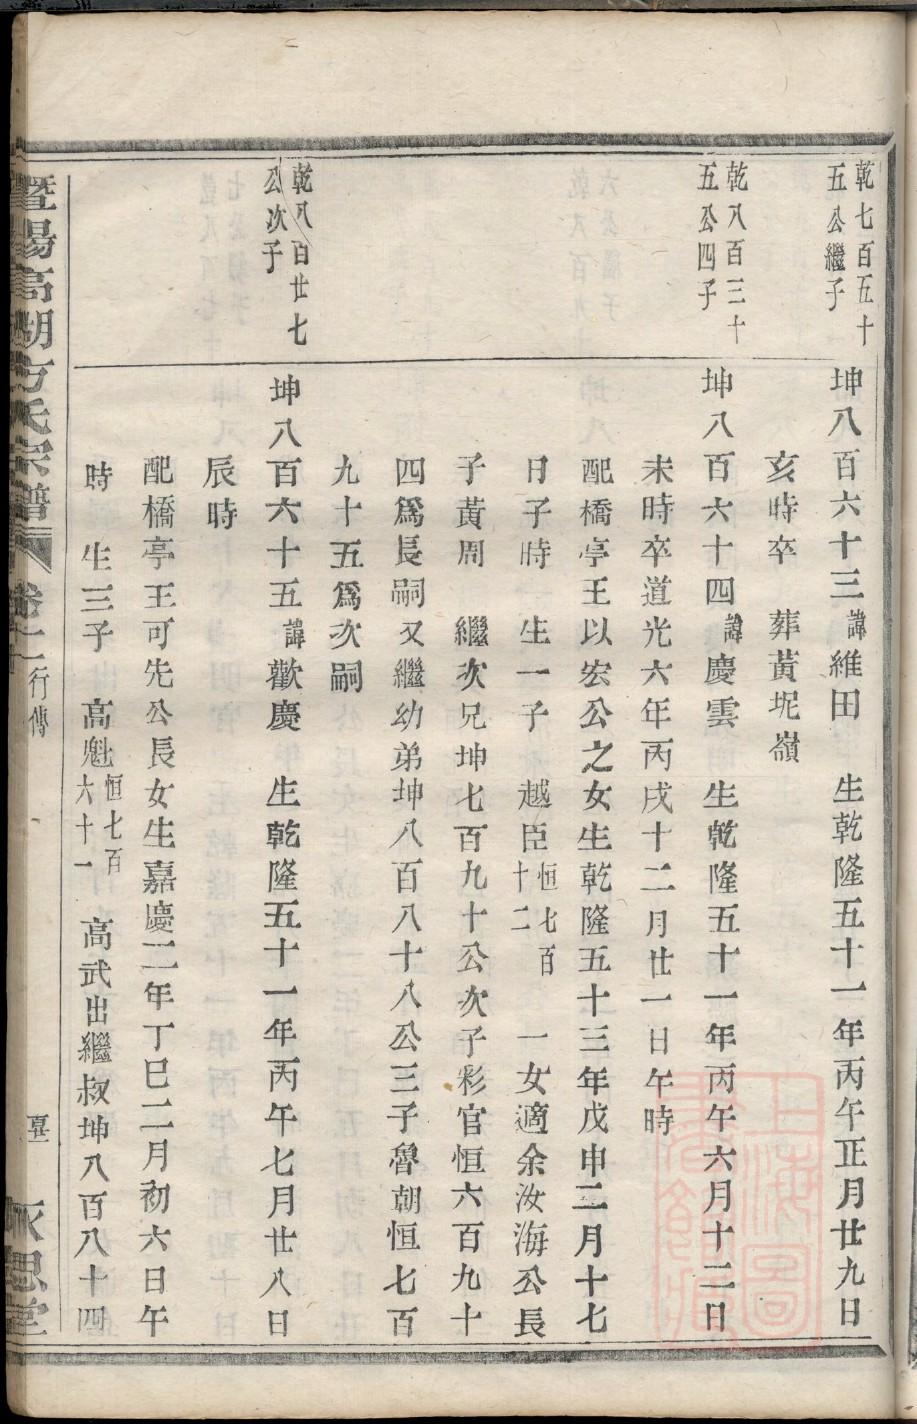 乾七百五十
五公繼子
坤八百六十三諱維田　生乾隆五十一年丙午正月廿九日
亥時卒　葬黃坭嶺
乾八百三十
五公四子
坤八百六十四諱慶雲　生乾隆五十一年丙午六月十二日
未時卒道光六年丙戌十二月廿一日午時
配橋亭王以宏公之女生乾隆五十三年戊申二月十七
日子時　生一子　越臣恒七百十二　一女適余汝海公長
子黃周　繼次兄坤七百九十公次子彩官恒六百九十
四爲長嗣又繼幼弟坤八百八十八公三子魯朝恒七百
九十五爲次嗣
乾八百廿七
公次子
坤八百六十五諱歡慶　生乾隆五十一年丙午七月廿八日
辰時
配橋亭王可先公長女生嘉慶二年丁巳二月初六日午
時　生三子　高魁恒七百六十一　高武出繼叔坤八百八十四
暨陽高湖方氏宗譜　行傳　永思堂